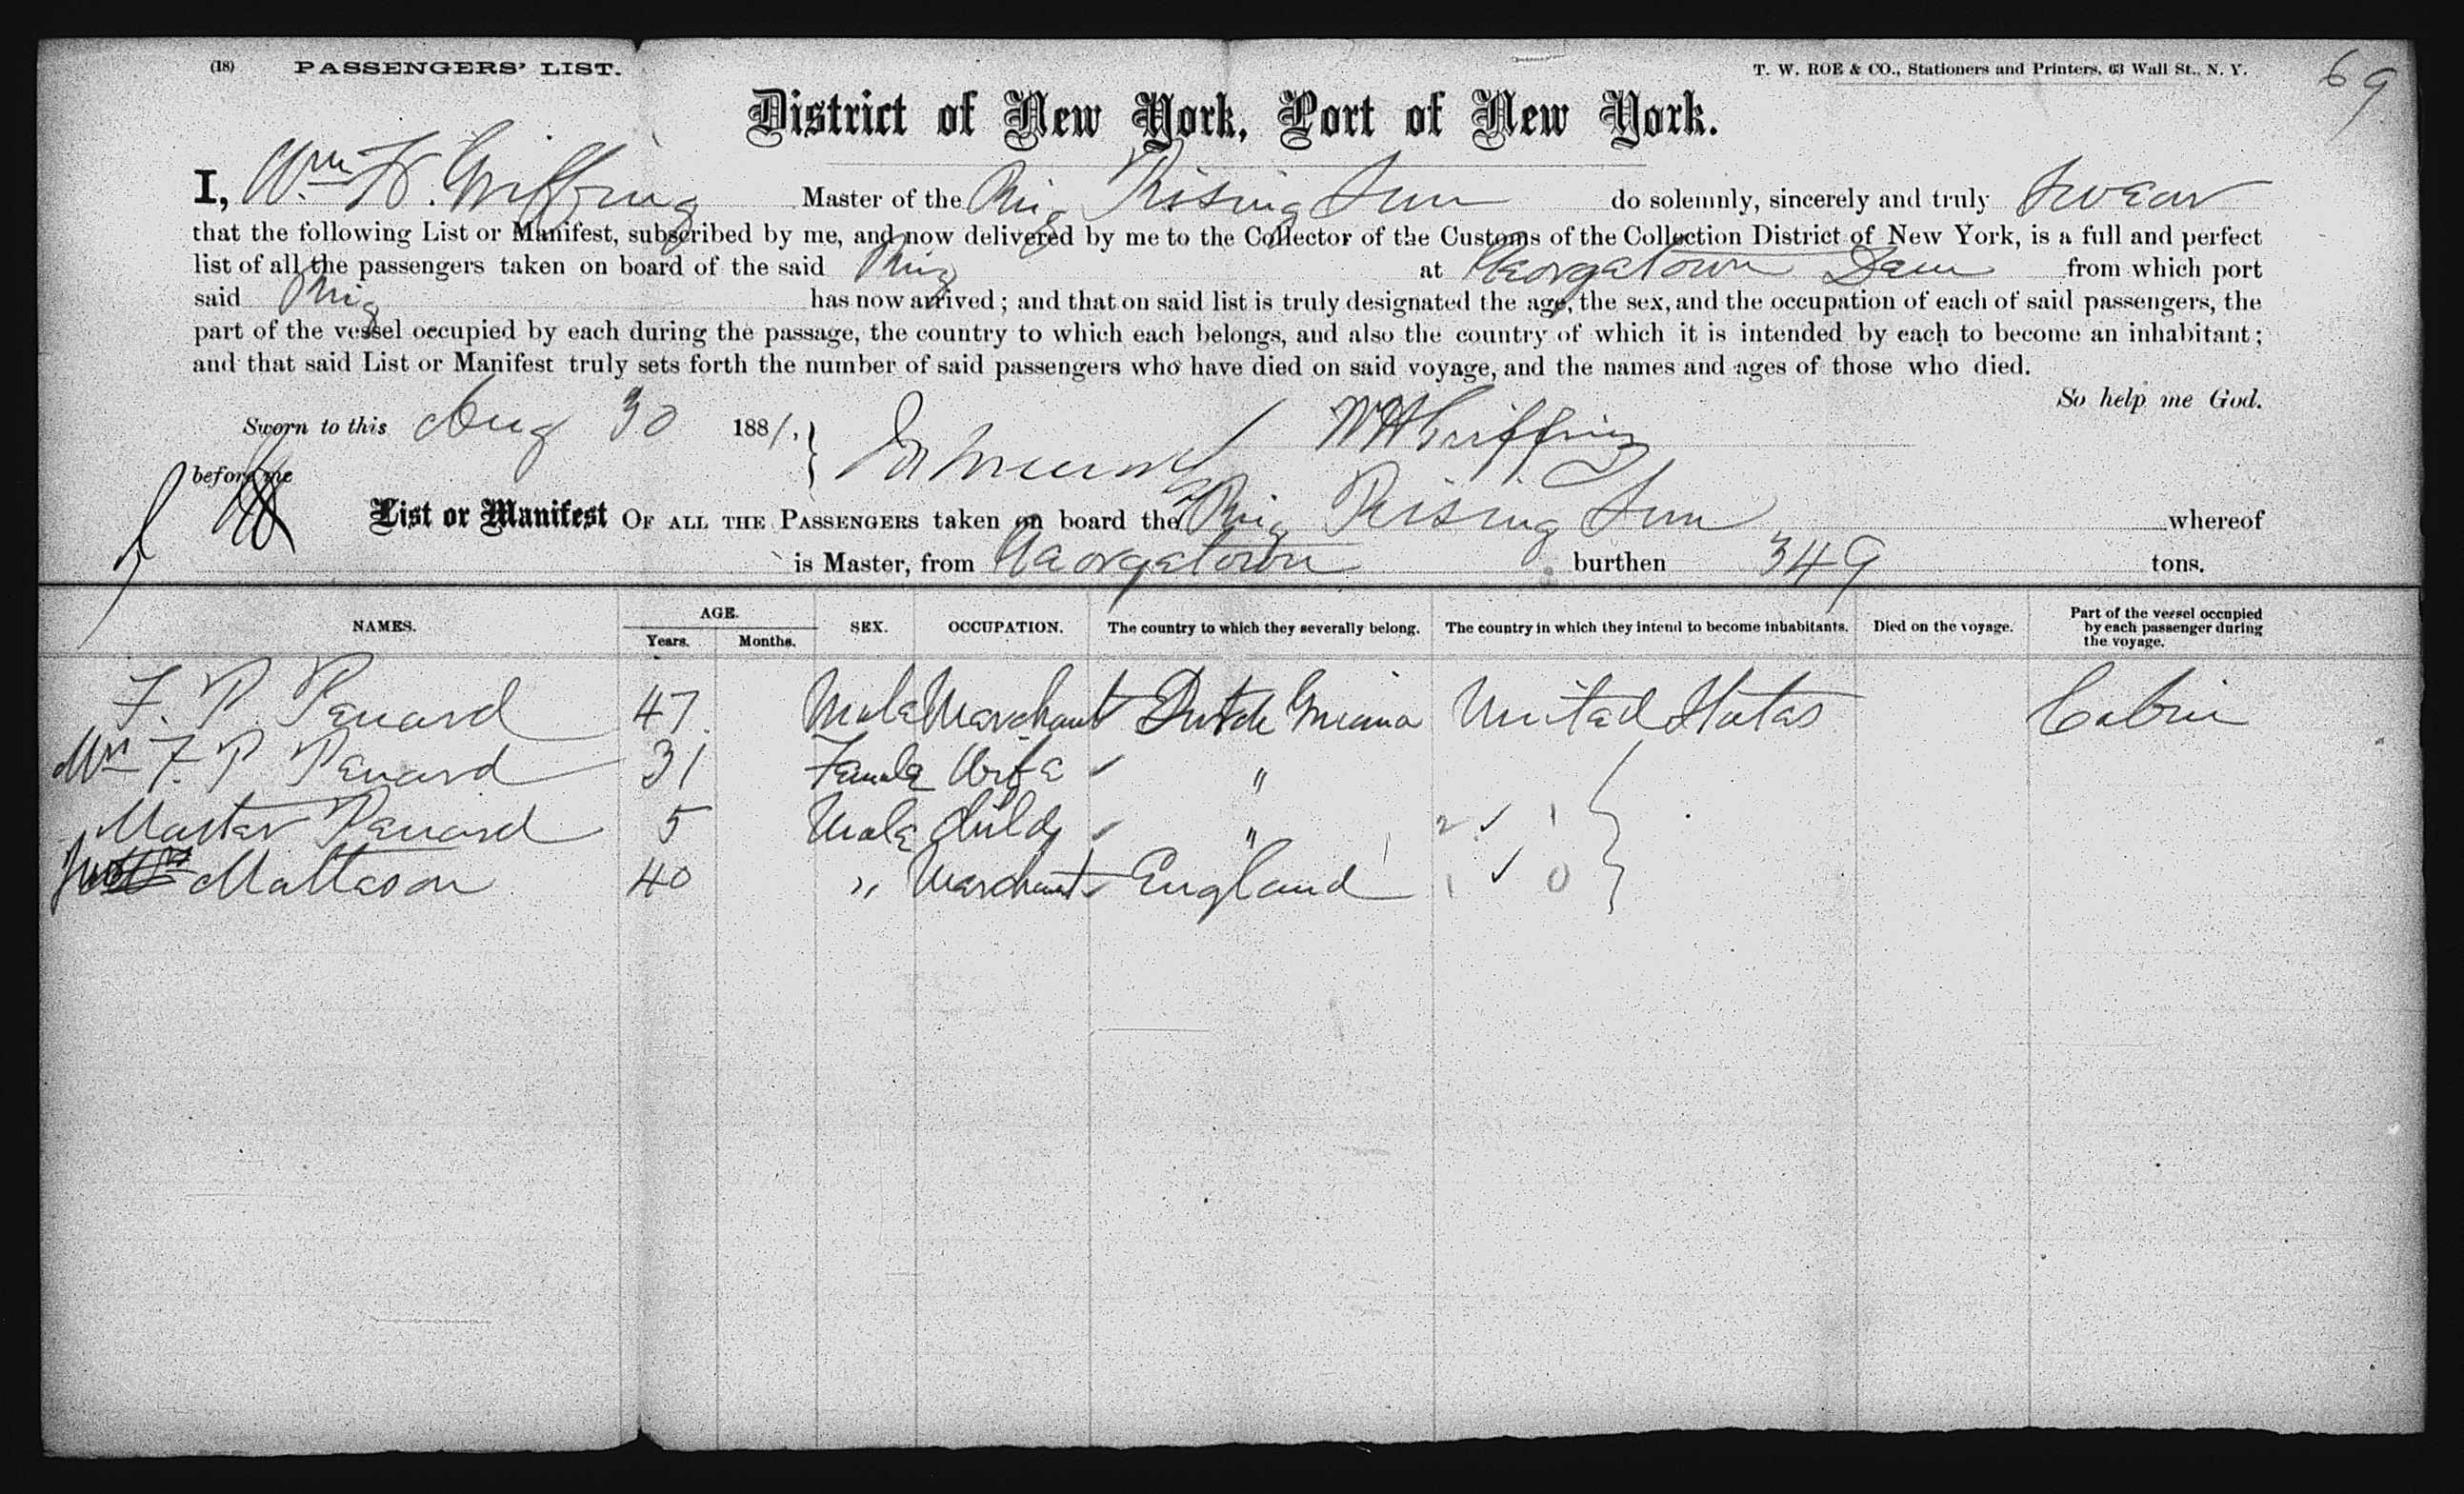 (18) PASSENGERS' LIST. T. W. ROE & CO., Stationers and Printers, 63 Wall St., N. Y. 69
District of New York, Port of New York.
I, Wm H. Griffing Master of the Brig Rising Sun do solemnly, sincerely and truly Swear
that the following List or Manifest, subscribed by me, and now delivered by me to the Collector of the Customs of the Collection District of New York, is a full and perfect
list of all the passengers taken on board of the said Brig at Georgetown Dem from which port
said Brig has now arrived; and that on said list is truly designated the age, the sex, and the occupation of each of said passengers, the
part of the vessel occupied by each during the passage, the country to which each belongs, and also the country of which it is intended by each to become an inhabitant;
and that said List or Manifest truly sets forth the number of said passengers who have died on said voyage, and the names and ages of those who died.
So help me God.
Sworn to this Aug 30 1881. WH Griffing
before me
List or Manifest OF ALL THE PASSENGERS taken on board the Brig Rising Sun whereof
is Master, from Georgetown burthen 349 tons.
NAMES. AGE. Years. Months. SEX. OCCUPATION. The country to which they severally belong. The country in which they intend to become inhabitants. Died on the voyage. Part of the vessel occupied by each passenger during the voyage.
F. P. Penard 47 Male Merchant Dutch Guiana United States Cabin
Mrs F. P. Penard 31 Female Wife "
Master Penard 5 Male Child " 2 ✓ 1
Matteson 40 " Merchant England 1 ✓ 0